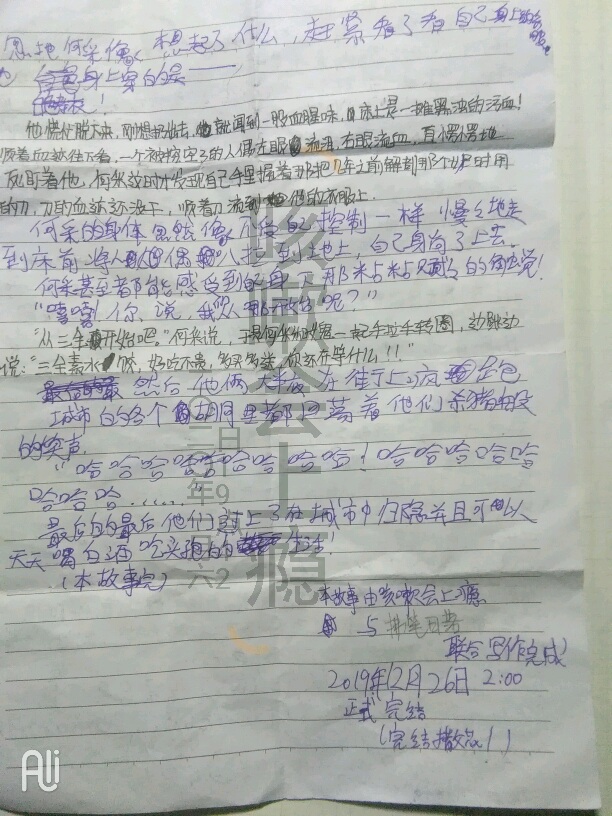 忽地何采像想起了什么，赶紧看了看自己身上的衣服
身上穿的是——
！
他慌忙脱下来，刚想扔出去，就闻到一股血腥味，床上是一摊黑浊的污血！
顺着血迹往下看，一个被挖空了的人偶左眼流泪，右眼流血，直愣愣地
盯着他，何采这时才发现自己手里握着那把几年之前解剖那个时用
的刀，刀的血迹还没干，顺着刀流到他的衣服上。
何采的身体忽然像不受自己控制一样，慢慢地走
到床前，将人偶扒拉到地上，自己身筒了上去。
何采甚至都能感受到身下那粘粘腻腻的触觉！
“嘻嘻！你说，我从哪开始呢？”
“从三全开始吧。”何采说，于是何采和鬼一起手拉手转圈，边跳边
说：“三全素水饺，好吃不贵，多买多送，你还在等什么！！”
然后他俩大半夜在街上疯跑
城市的各个胡同里都回荡着他们杀猪般
的笑声。
“哈哈哈哈哈哈哈哈！哈哈哈哈哈
哈哈哈......
最后的最后他们过上了在城市中归隐并且可以
天天喝白酒吃头孢的生活。
（本故事完）
本故事由咳嗽会上瘾
与
联合写作完成
2019年12月26日 2:00
正式完结
（完结撒花！）
咳嗽会上瘾
Ali